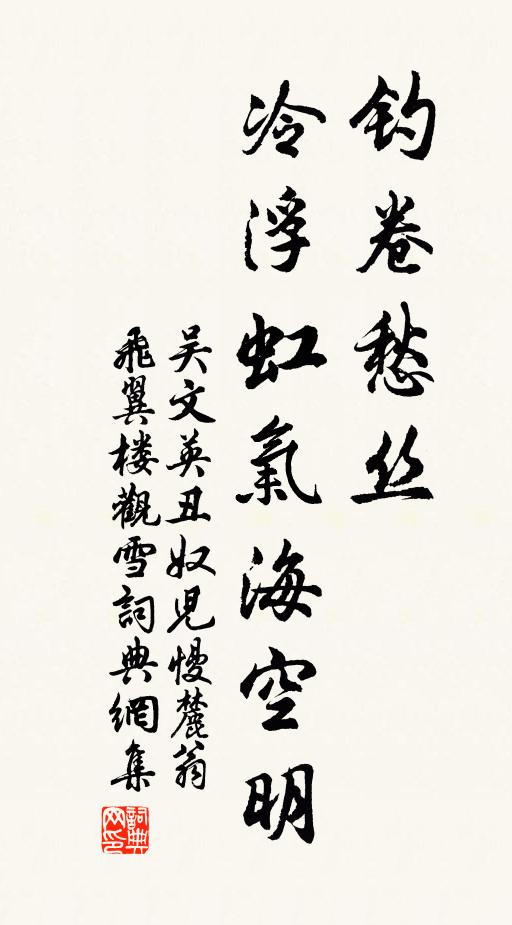 钓卷愁丝
冷浮虹氣海空明
吴文英丑奴児慢麓翁
飛翼楼觀雪詞典網集
詞典
网印